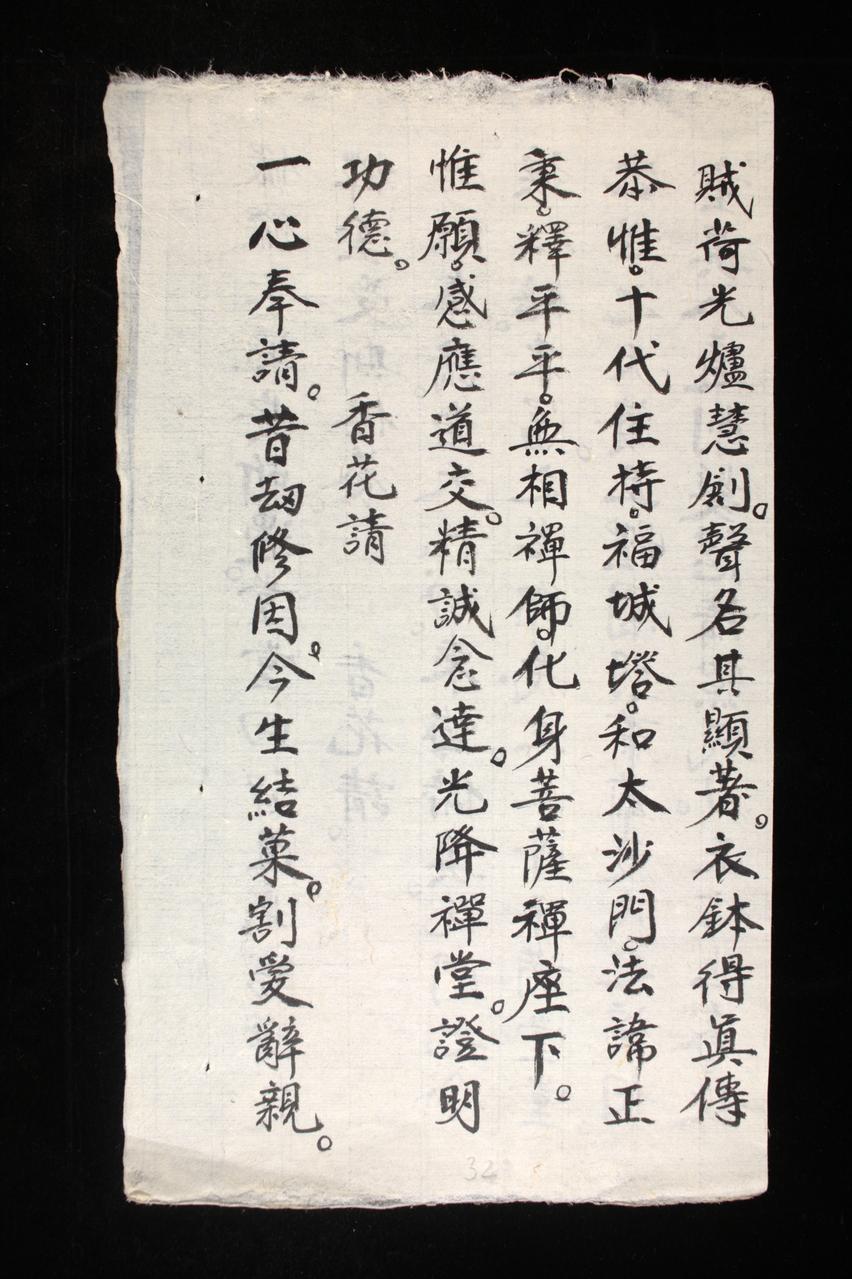 賊荷光爐慧劍。聲名其顯著。衣鉢得眞傳
恭惟。十代住持。福城塔。和太沙門。法諱正
秉。釋平平。無相禪師。化身菩薩禪座下。
惟願。感應道交。精誠念達。光降禪堂。證明
功德。 香花請
一心奉請。昔刼修因。今生結菓。割愛辭親。
32